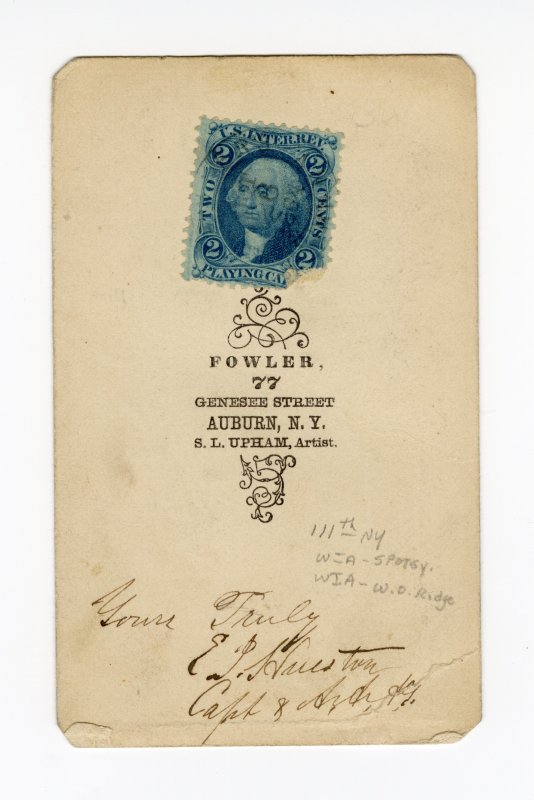 U.S. INTER. REV.
2 2
TWO CENTS
2 2
PLAYING CA
FOWLER,
77
GENESEE STREET
AUBURN, N. Y.
S. L. UPHAM, Artist.
111th NY
WIA - SPOTSY.
WIA - W.O. Ridge
Yours Truly
E. P. Hueston
Capt &